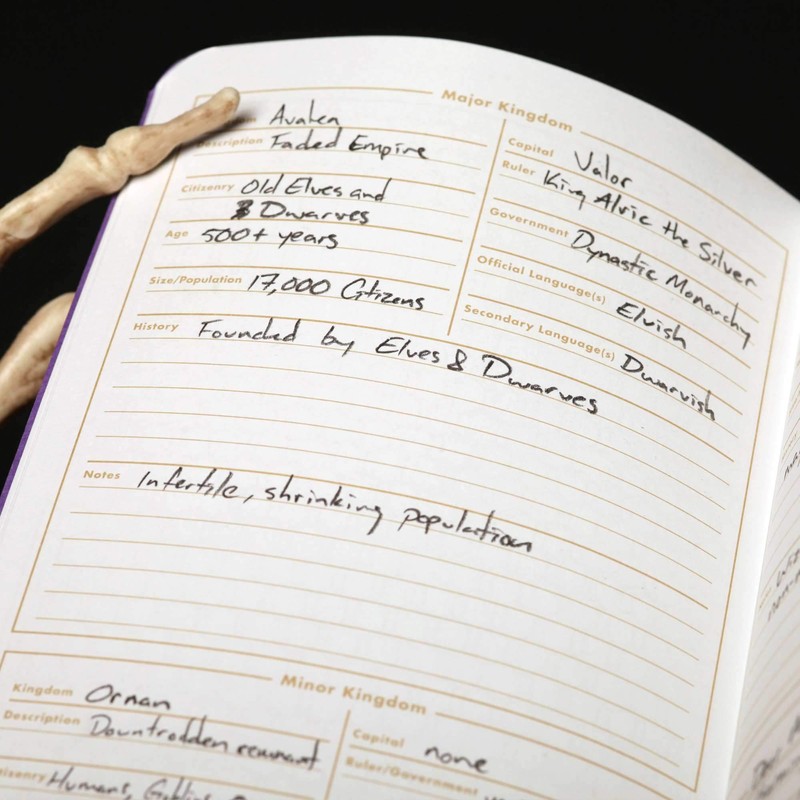 Major Kingdom
Avalen
Description Faded Empire
Citizenry Old Elves and
& Dwarves
Age 500+ years
Size/Population 17,000 Citizens
Capital Valor
Ruler King Alvic the Silver
Government Dynastic Monarchy
Official Language(s) Elvish
Secondary Language(s) Dwarvish
History Founded by Elves & Dwarves
Notes Infertile, shrinking population
Minor Kingdom
Kingdom Ornan
Description Downtrodden remnant
Humans, Goblins
Capital none
Ruler/Government